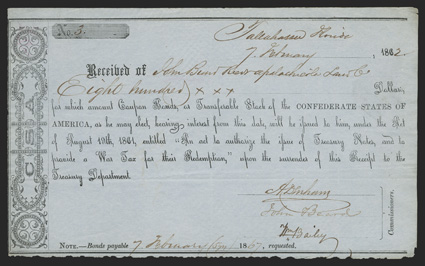 No. 3.
Tallahassee Florida
7 February 1862.
Received of John Beard Apalachicola Land Co
Eight hundred × × × Dollars,
for which amount Coupon Bonds, or Transferable Stock of the CONFEDERATE STATES OF
AMERICA, as he may elect, bearing interest from this date, will be issued to him, under the Act
of August 19th, 1861, entitled "An act to authorize the issue of Treasury Notes, and to
provide a War Tax for their Redemption," upon the surrender of this Receipt to the
Treasury Department.
C.S.A.
John Beard
Wm Bailey
Commissioners.
NOTE.—Bonds payable 7 February 1867. requested.